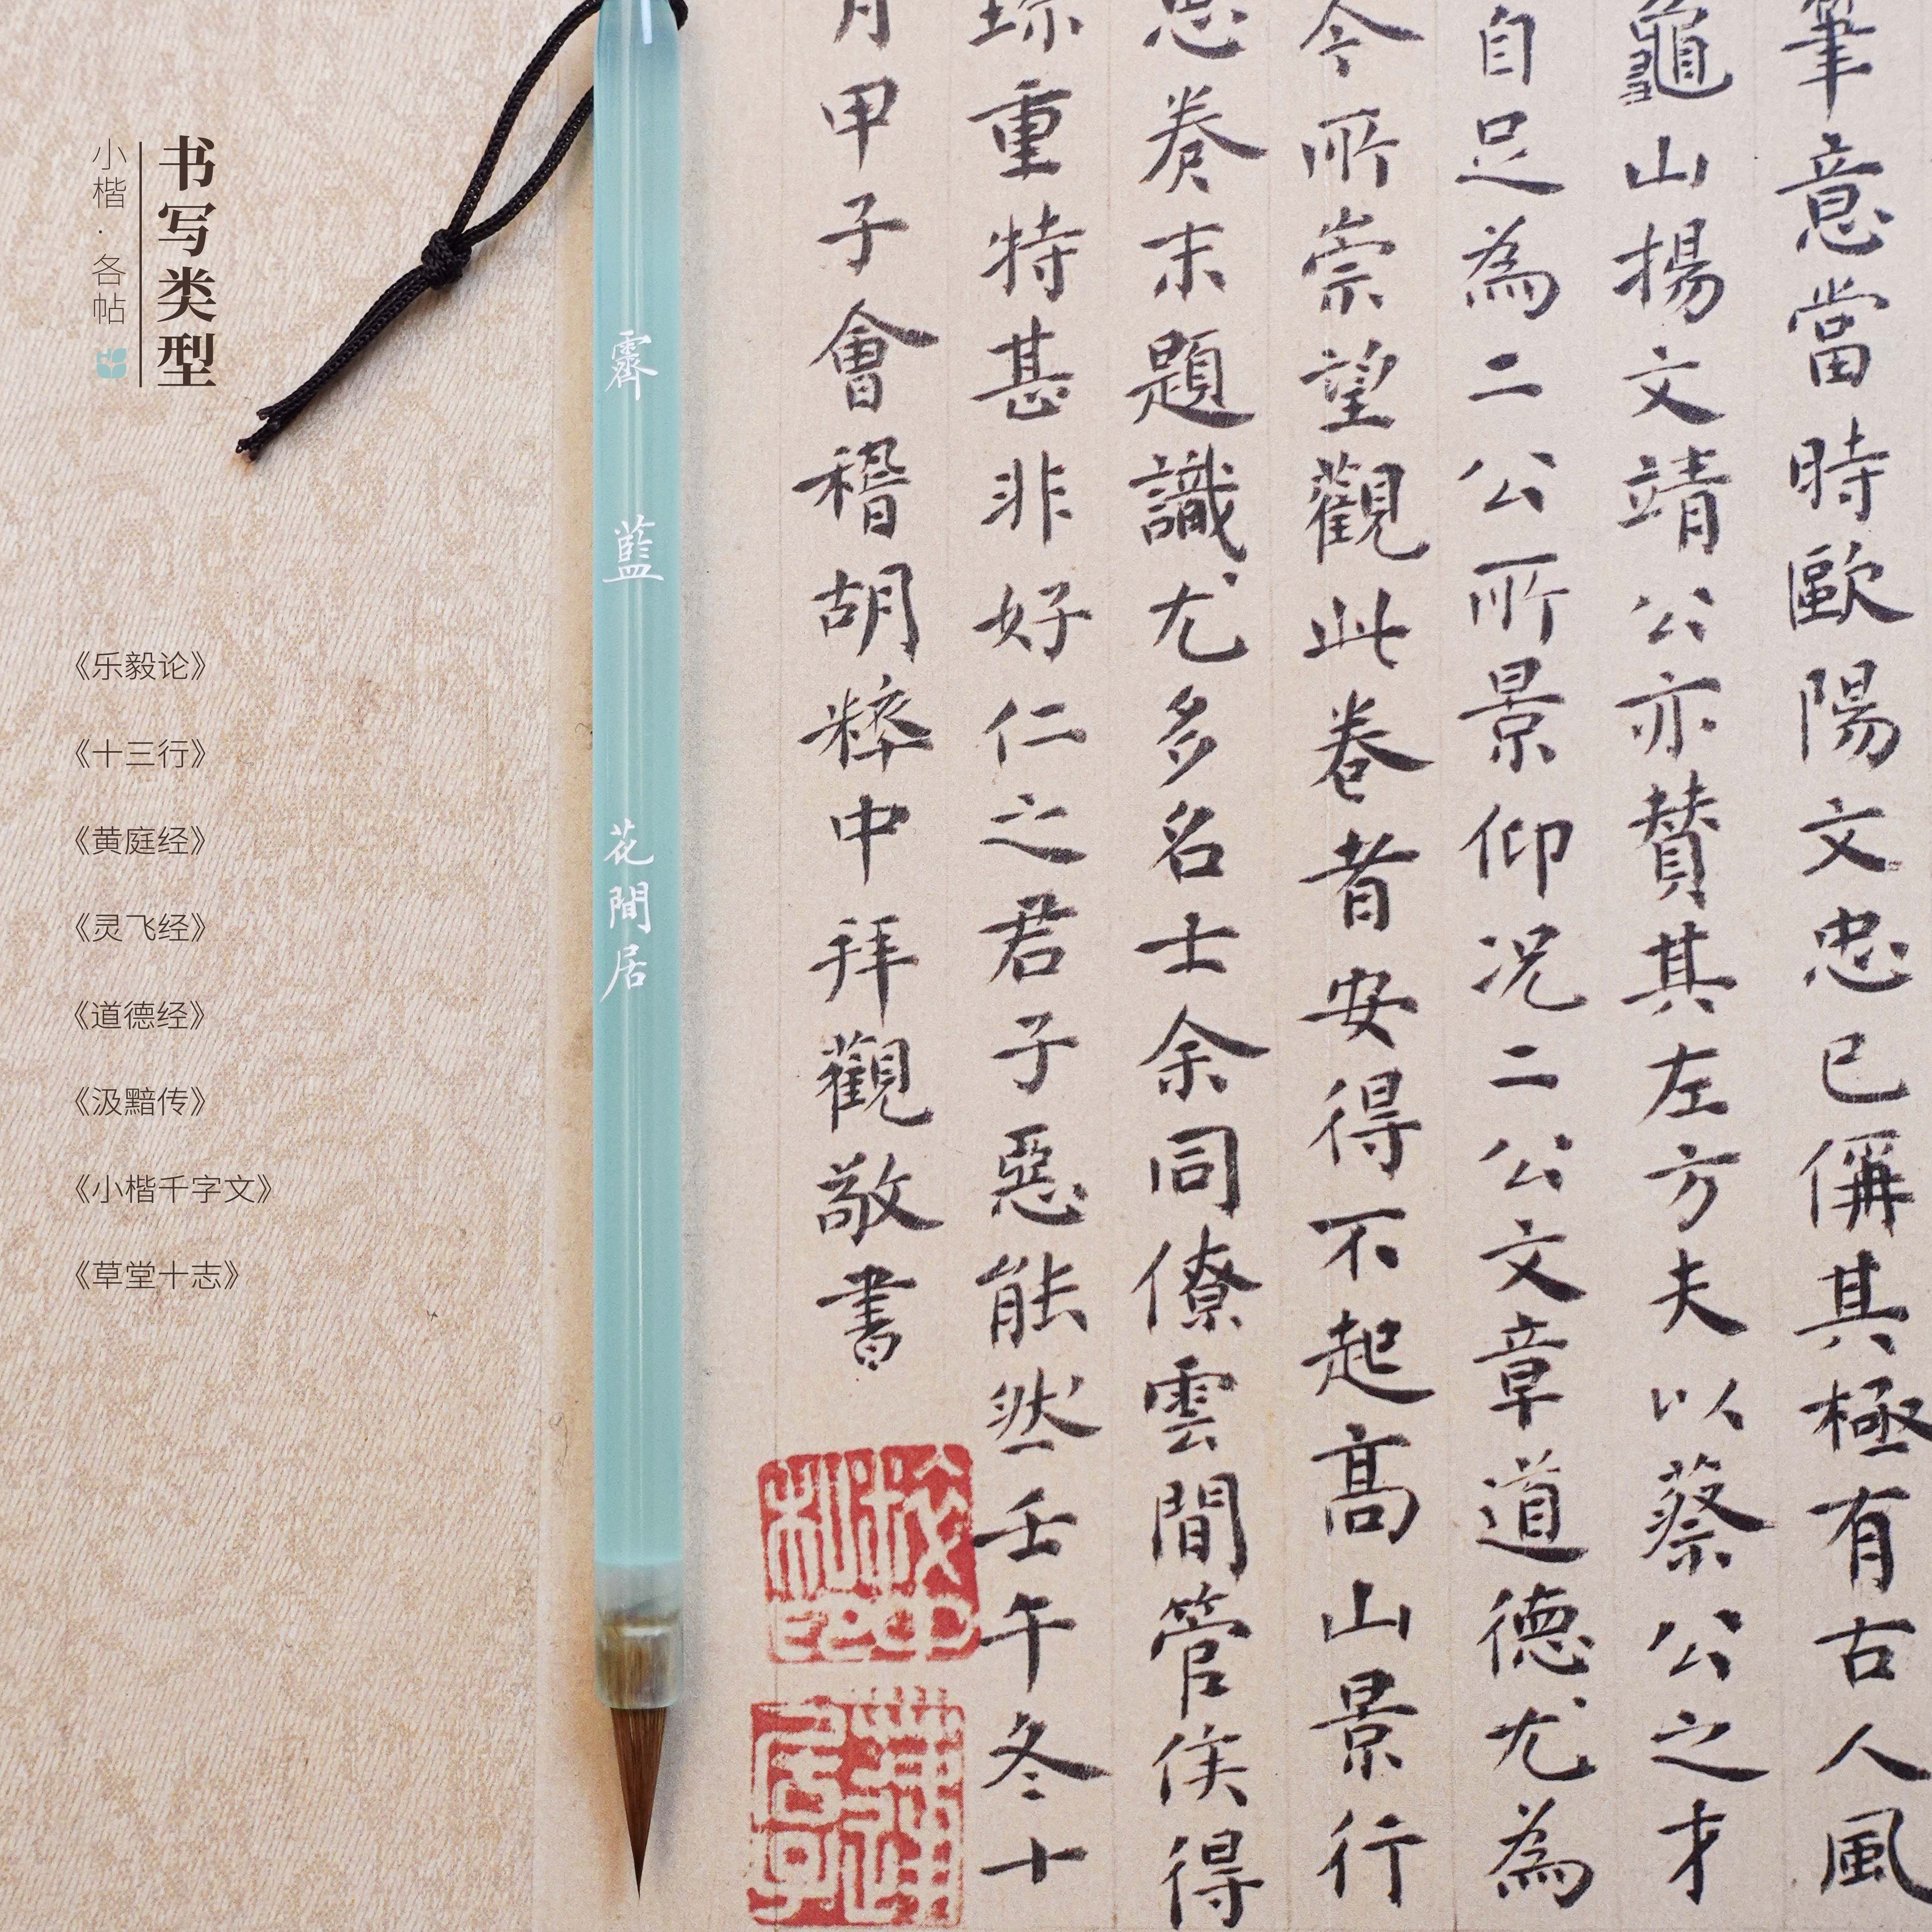 书写类型
小楷·各帖
《乐毅论》
《十三行》
《黄庭经》
《灵飞经》
《道德经》
《汲黯传》
《小楷千字文》
《草堂十志》
霽藍
花間居
筆意當時歐陽文忠已偁其極有古人風
龜山楊文靖公亦贊其左方夫以蔡公之才
自足為二公所景仰况二公文章道德尤為
今所崇望觀此卷者安得不起高山景行
思卷末題識尤多名士余同僚雲間管侯得
珎重特甚非好仁之君子惡能然壬午冬十
月甲子會稽胡粹中拜觀敬書